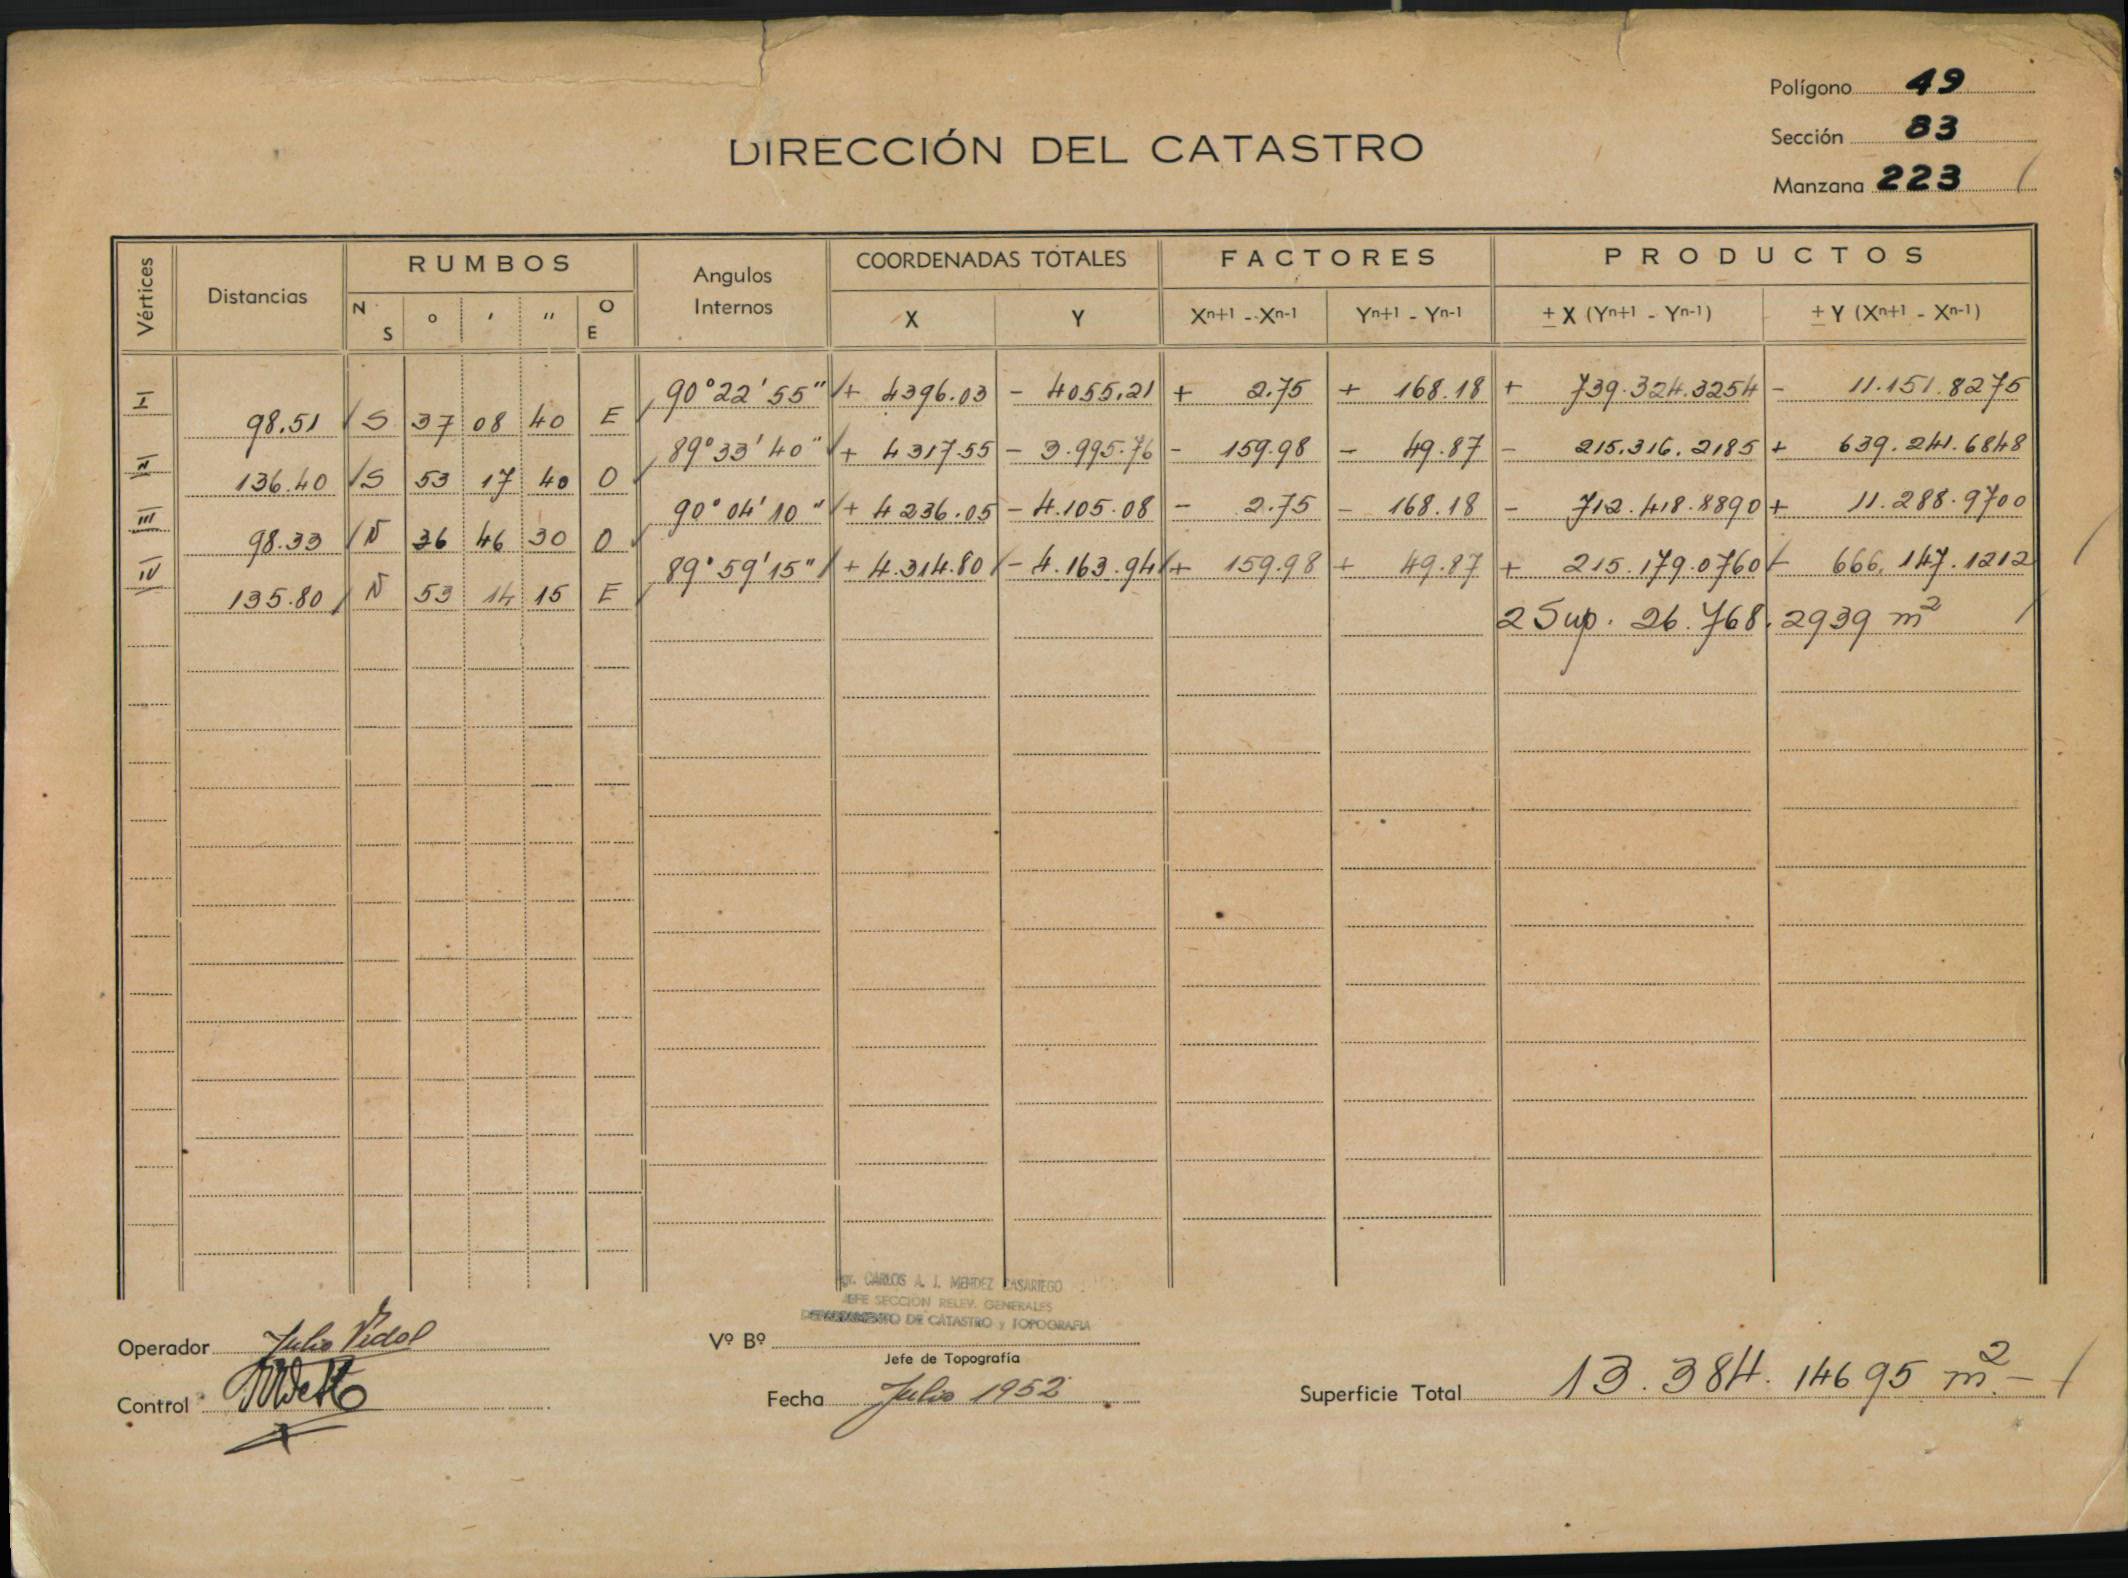 Polígono 49
Sección 83
Manzana 223
DIRECCIÓN DEL CATASTRO
Vértices Distancias RUMBOS Angulos Internos COORDENADAS TOTALES FACTORES PRODUCTOS
N S o ' " O E X Y Xn+1 - Xn-1 Yn+1 - Yn-1 ± X (Yn+1 - Yn-1) ± Y (Xn+1 - Xn-1)
I 90°22'55" + 4396.03 - 4055.21 + 2.75 + 168.18 + 739.324.3254 - 11.151.8275
98.51 S 37 08 40 E
II 89°33'40" + 4317.55 - 3.995.76 - 159.98 - 49.87 - 215.316.2185 + 639.241.6848
136.40 S 53 17 40 O
III 90°04'10" + 4236.05 - 4.105.08 - 2.75 - 168.18 - 712.418.8890 + 11.288.9700
98.33 N 36 46 30 O
IV 89°59'15" + 4.314.80 - 4.163.94 + 159.98 + 49.87 + 215.179.0760 - 666.147.1212
135.80 N 53 14 15 E
2 Sup. 26.768.2939 m²
CARLOS A. J. MENDEZ CASARIEGO
JEFE SECCION RELEV. GENERALES
DEPARTAMENTO DE CATASTRO y TOPOGRAFIA
Operador Julio Vidal
Vº Bº
Jefe de Topografía
Control
Fecha Julio 1952
Superficie Total 13.384.14695 m²-